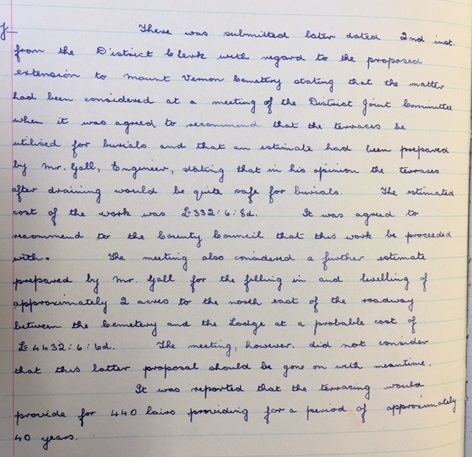 There was submitted later dated 2nd inst.
from the District Clerk with regard to the proposed
extension to Mount Vernon Cemetery stating that the matter
had been considered at a meeting of the District Joint Committee
when it was agreed to recommend that the terraces be
utilised for burials and that an estimate had been prepared
by Mr. Gall, Engineer, stating that in his opinion the terraces
after draining would be quite safe for burials. The estimated
cost of the work was £332:6:8d. It was agreed to
recommend to the County Council that this work be proceeded
with. The meeting also considered a further estimate
prepared by Mr. Gall for the filling in and levelling of
approximately 2 acres to the north east of the roadway
between the Cemetery and the Lodge at a probable cost of
£4432:6:6d. The meeting, however, did not consider
that this latter proposal should be gone on with meantime.
It was reported that the terracing would
provide for 440 lairs providing for a period of approximately
40 years.